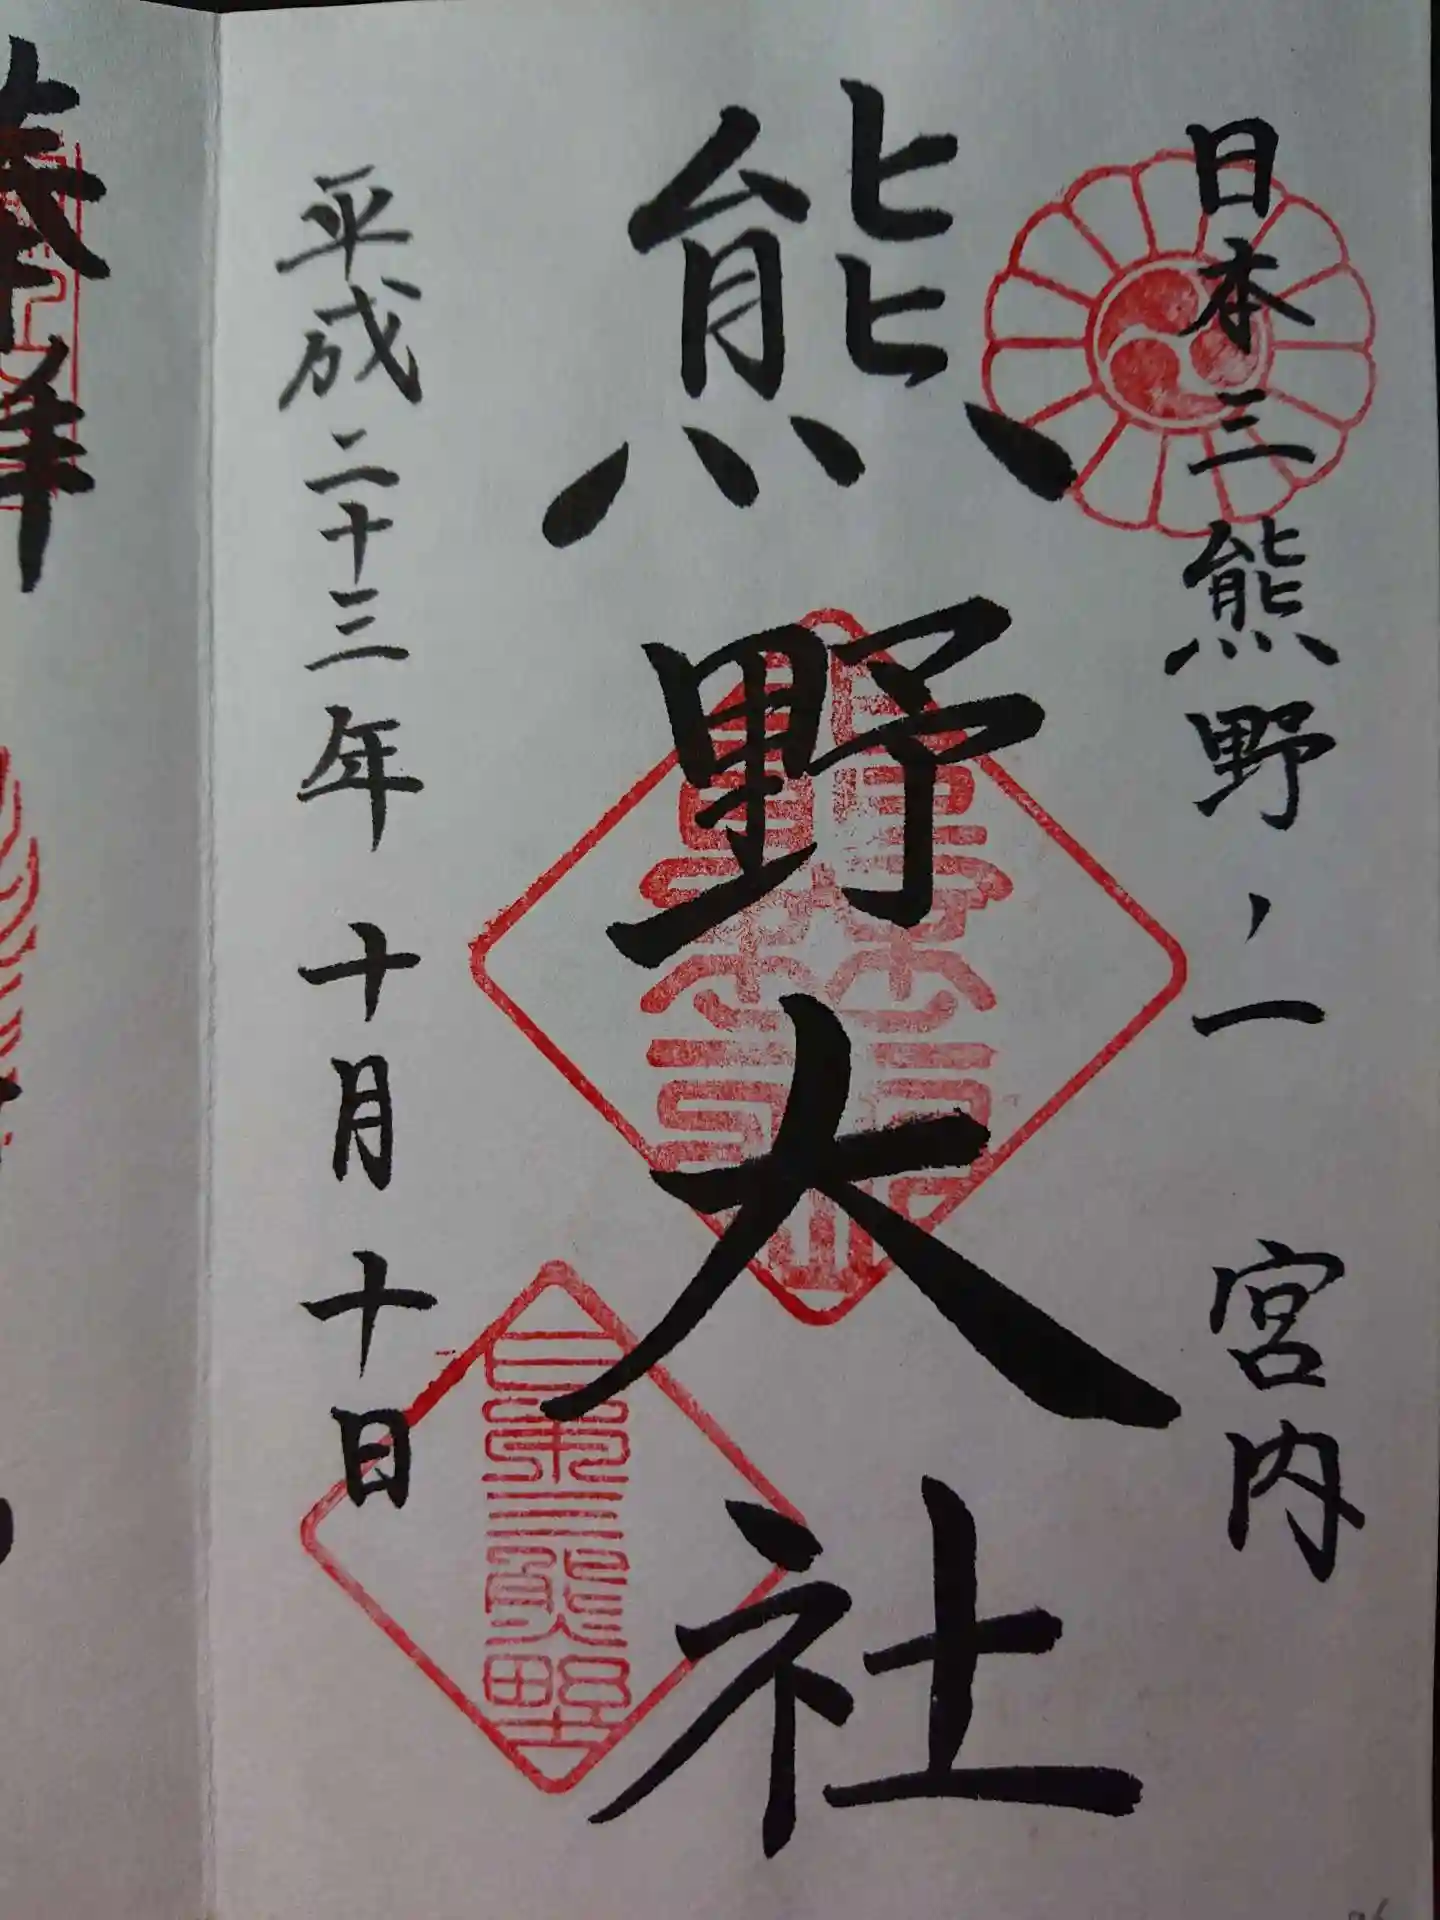 日本三熊野ノ一 宮内
熊野大社
平成二十三年 十月 十日
日本三熊野
奉拝